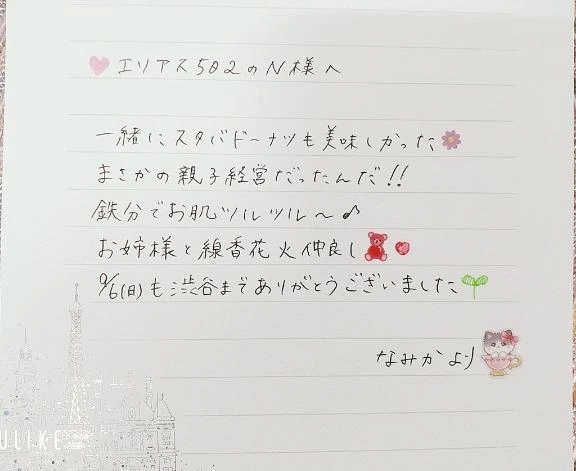 エリアス502のN様へ
一緒にスタバドーナツも美味しかった
まさかの親子経営だったんだ!!
鉄分でお肌ツルツル〜♪
お姉様と線香花火仲良し
9/6(日)も渋谷までありがとうございました
なみかより
ULIKE